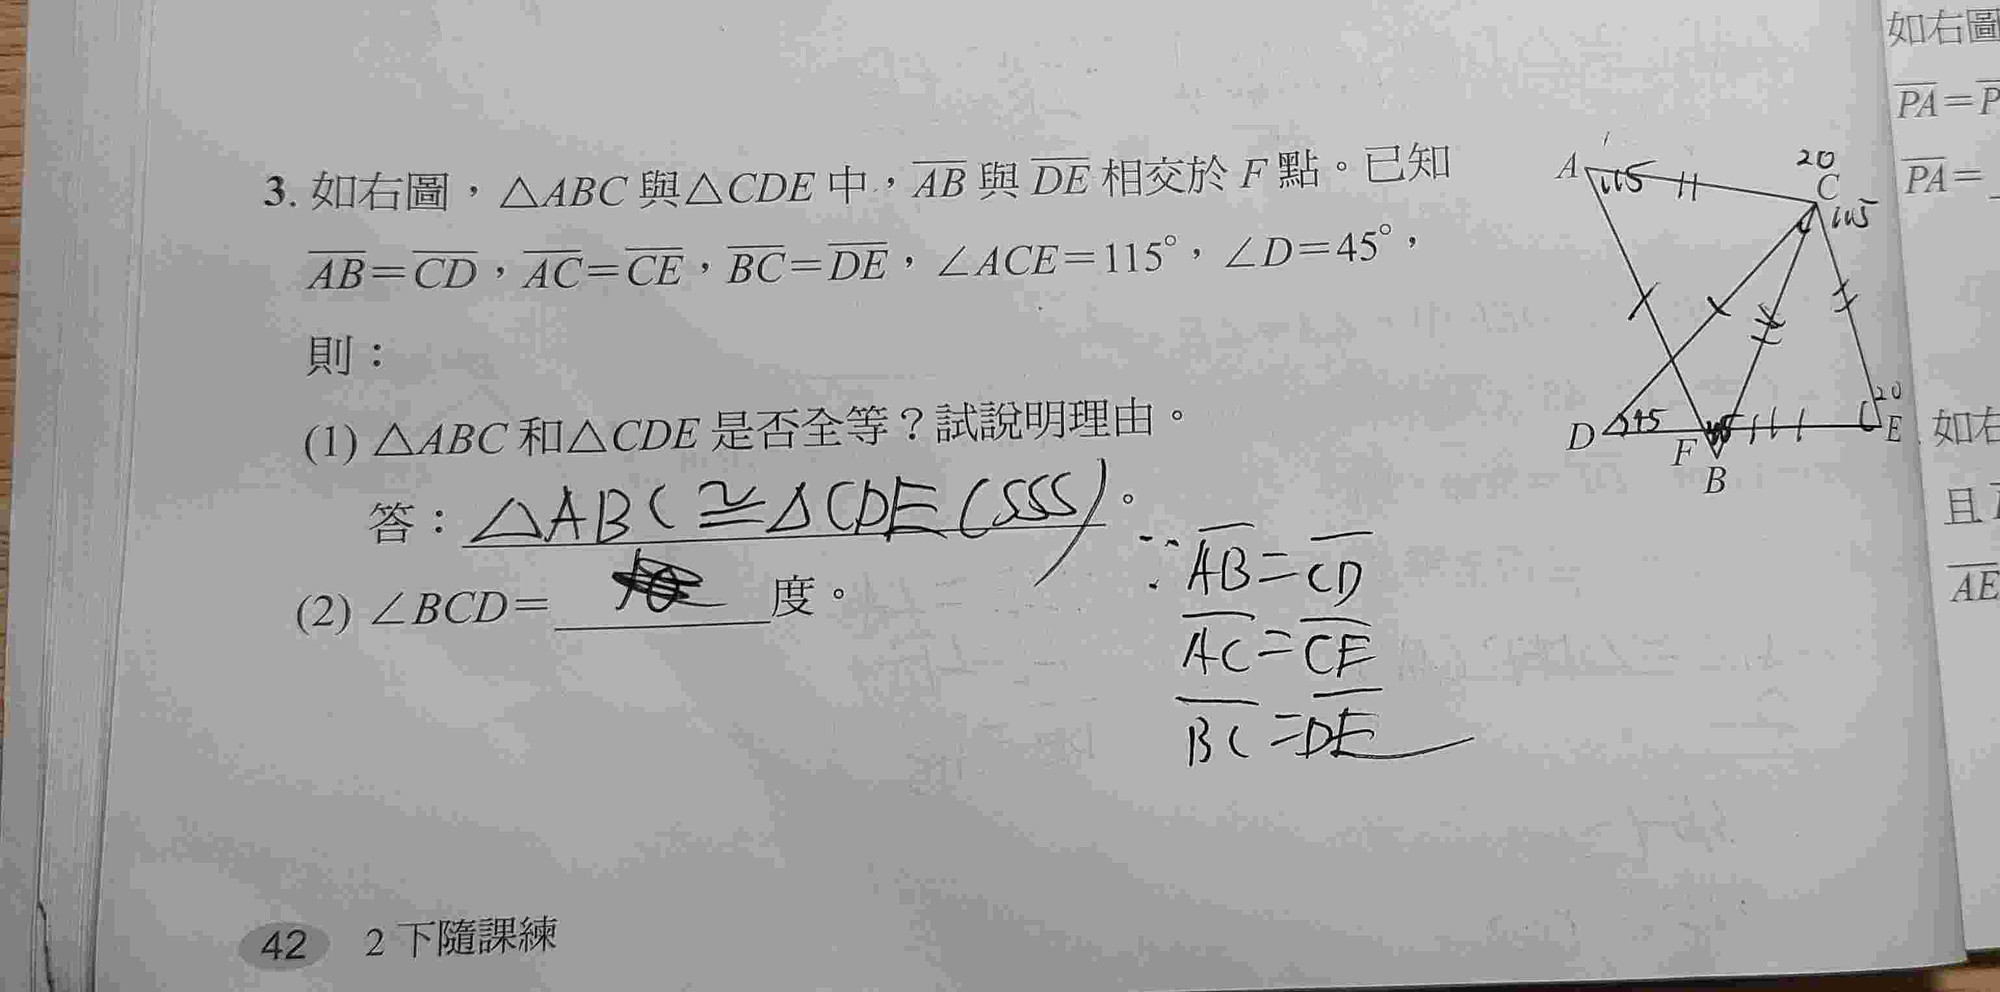 3. 如右圖，△ABC與△CDE中，AB與DE相交於F點。已知
AB=CD，AC=CE，BC=DE，∠ACE=115°，∠D=45°，
則：
(1) △ABC和△CDE是否全等？試說明理由。
答：△ABC≅△CDE(SSS)。
∵AB=CD
AC=CE
BC=DE
(2) ∠BCD= 度。
A
115
20
C
115
D
45
F
B
20
E
42 2下隨課練
如右圖
PA=P
PA=
如右
且
AE